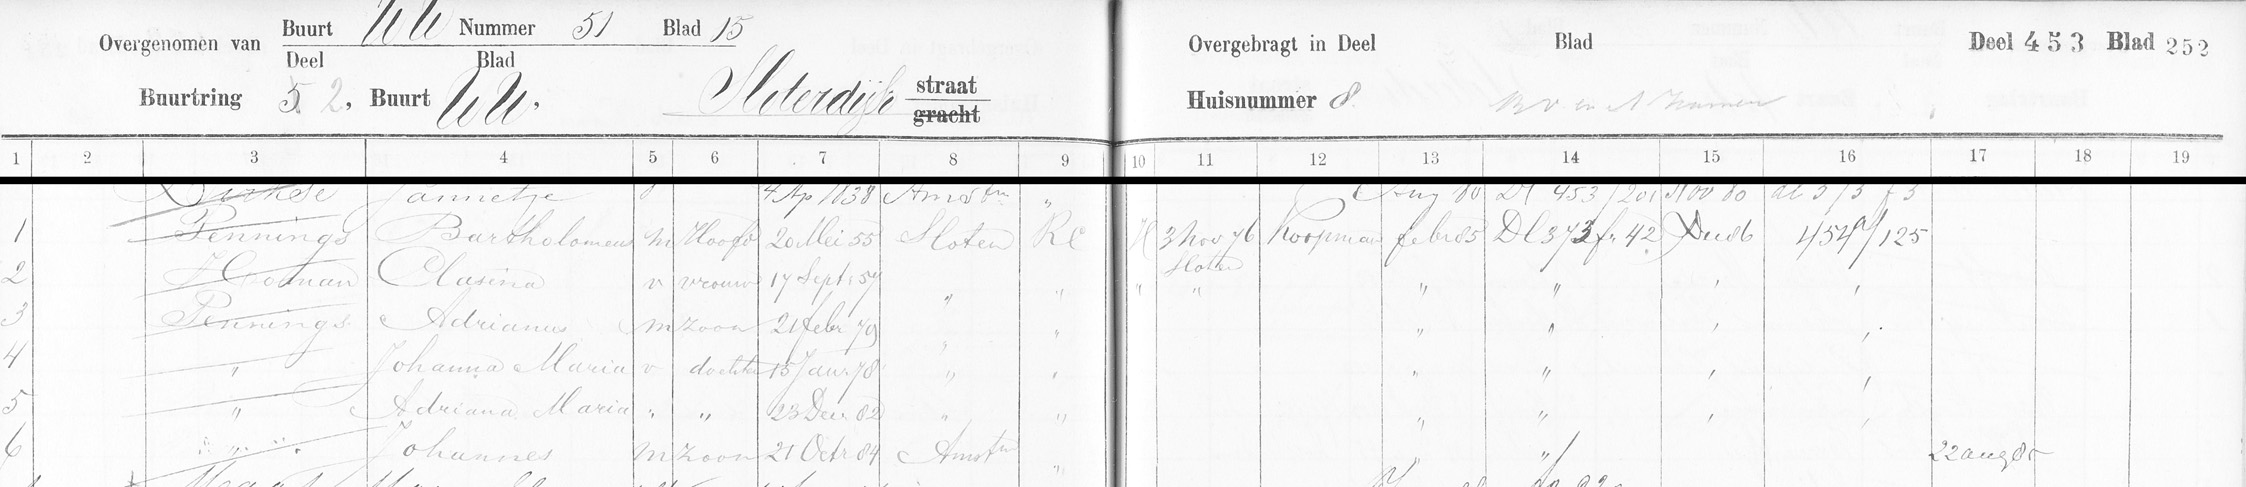 Overgenomen van Buurt UU Nummer 51 Blad 15
Deel Blad
Buurtring 52. Buurt UU. Sloterdijk straat
gracht
Overgebragt in Deel Blad Deel 453 Blad 252
Huisnummer 8
1 2 3 4 5 6 7 8 9 10 11 12 13 14 15 16 17 18 19
Jannetje 4 Ap 1838 Amstm " Aug 80 Dl 453/201 Nov 80 dl 373 f 3
1 Pennings Bartholomeus m Hoofd 20 Mei 55 Sloten RC H 3 Nov 76 Koopman febr 85 Dl 373 fr 42 Dec 86 454/125
Sloten
2 Homan Clasina v vrouw 17 Sept 57 " " " " " " " "
3 Pennings Adrianus m zoon 21 febr 79 " " " " " "
4 " Johanna Maria v dochter 15 Janr 78 " " " " " "
5 " Adriana Maria " " 23 Decr 82 " " " " " "
6 " Johannes m zoon 21 Octr 84 Amstm " " " 22 aug 85